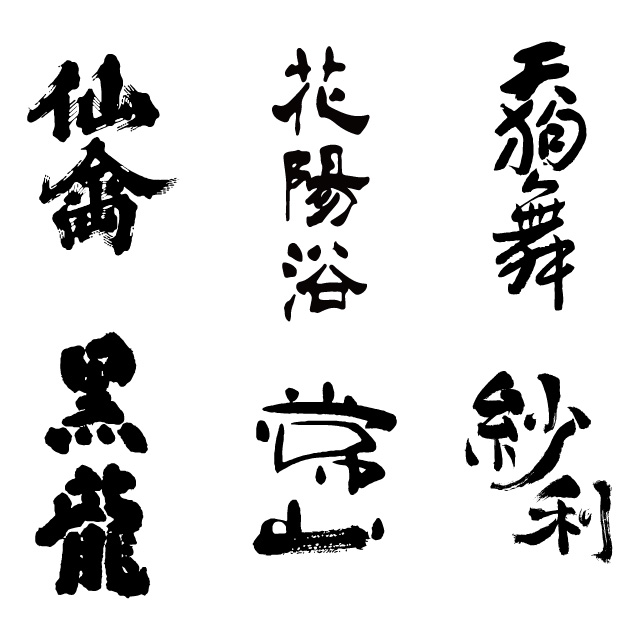 仙禽
花陽浴
天狗舞
黒龍
常山
紗利